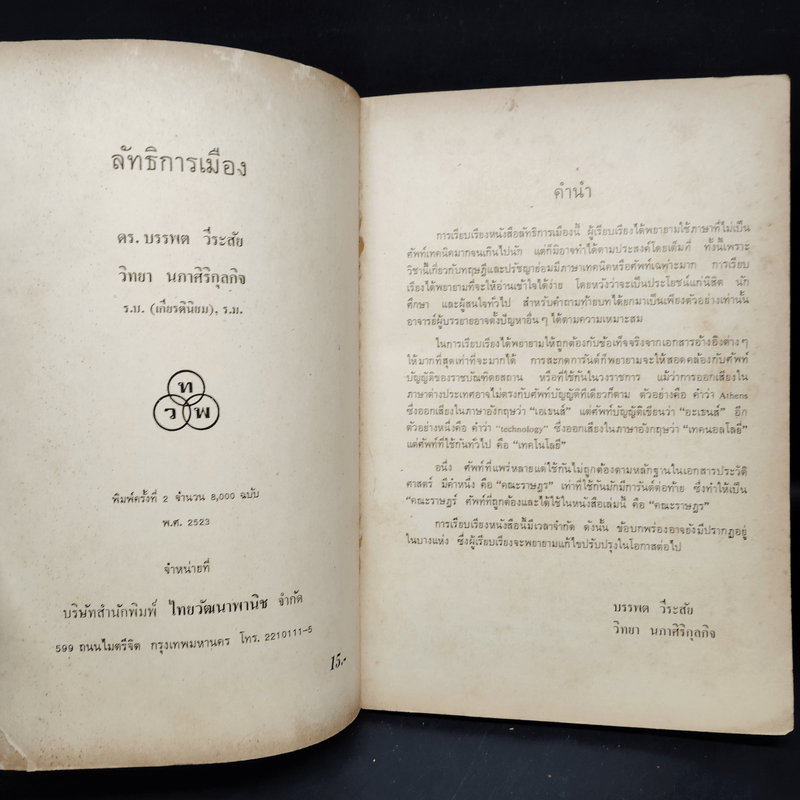 ลัทธิการเมือง
ดร. บรรพต วีระสัย
วิทยา นภาศิริกุลกิจ
ร.บ. (เกียรตินิยม), ร.ม.
ท
ว พ
พิมพ์ครั้งที่ 2 จำนวน 8,000 ฉบับ
พ.ศ. 2523
จำหน่ายที่
บริษัทสำนักพิมพ์ ไทยวัฒนาพานิช จำกัด
599 ถนนไมตรีจิต กรุงเทพมหานคร โทร. 2210111-5
15.-
คำนำ
การเรียบเรียงหนังสือลัทธิการเมืองนี้ ผู้เรียบเรียงได้พยายามใช้ภาษาที่ไม่เป็น
ศัพท์เทคนิคมากจนเกินไปนัก แต่ก็มิอาจทำได้ตามประสงค์โดยเต็มที่ ทั้งนี้เพราะ
วิชานี้เกี่ยวกับทฤษฎีและปรัชญาย่อมมีภาษาเทคนิคหรือศัพท์เฉพาะมาก การเรียบ
เรียงได้พยายามที่จะให้อ่านเข้าใจได้ง่าย โดยหวังว่าจะเป็นประโยชน์แก่นิสิต นัก
ศึกษา และผู้สนใจทั่วไป สำหรับคำถามท้ายบทได้ยกมาเป็นเพียงตัวอย่างเท่านั้น
อาจารย์ผู้บรรยายอาจตั้งปัญหาอื่นๆ ได้ตามความเหมาะสม
ในการเรียบเรียงได้พยายามให้ถูกต้องกับข้อเท็จจริงจากเอกสารอ้างอิงต่างๆ
ให้มากที่สุดเท่าที่จะมากได้ การสะกดการันต์ก็พยายามจะให้สอดคล้องกับศัพท์
บัญญัติของราชบัณฑิตยสถาน หรือที่ใช้กันในวงราชการ แม้ว่าการออกเสียงใน
ภาษาต่างประเทศอาจไม่ตรงกับศัพท์บัญญัติทีเดียวก็ตาม ตัวอย่างคือ คำว่า Athens
ซึ่งออกเสียงในภาษาอังกฤษว่า "เอเธนส์" แต่ศัพท์บัญญัติเขียนว่า "อะเธนส์" อีก
ตัวอย่างหนึ่งคือ คำว่า "technology" ซึ่งออกเสียงในภาษาอังกฤษว่า "เทคนอลโลยี"
แต่ศัพท์ที่ใช้กันทั่วไป คือ "เทคโนโลยี"
อนึ่ง ศัพท์ที่แพร่หลายแต่ใช้กันไม่ถูกต้องตามหลักฐานในเอกสารประวัติ
ศาสตร์ มีคำหนึ่ง คือ "คณะราษฎร" เท่าที่ใช้กันมักมีการันต์ต่อท้าย ซึ่งทำให้เป็น
"คณะราษฎร์ ศัพท์ที่ถูกต้องและได้ใช้ในหนังสือเล่มนี้ คือ "คณะราษฎร"
การเรียบเรียงหนังสือนี้มีเวลาจำกัด ดังนั้น ข้อบกพร่องอาจยังมีปรากฏอยู่
ในบางแห่ง ซึ่งผู้เรียบเรียงจะพยายามแก้ไขปรับปรุงในโอกาสต่อไป
บรรพต วีระสัย
วิทยา นภาศิริกุลกิจ